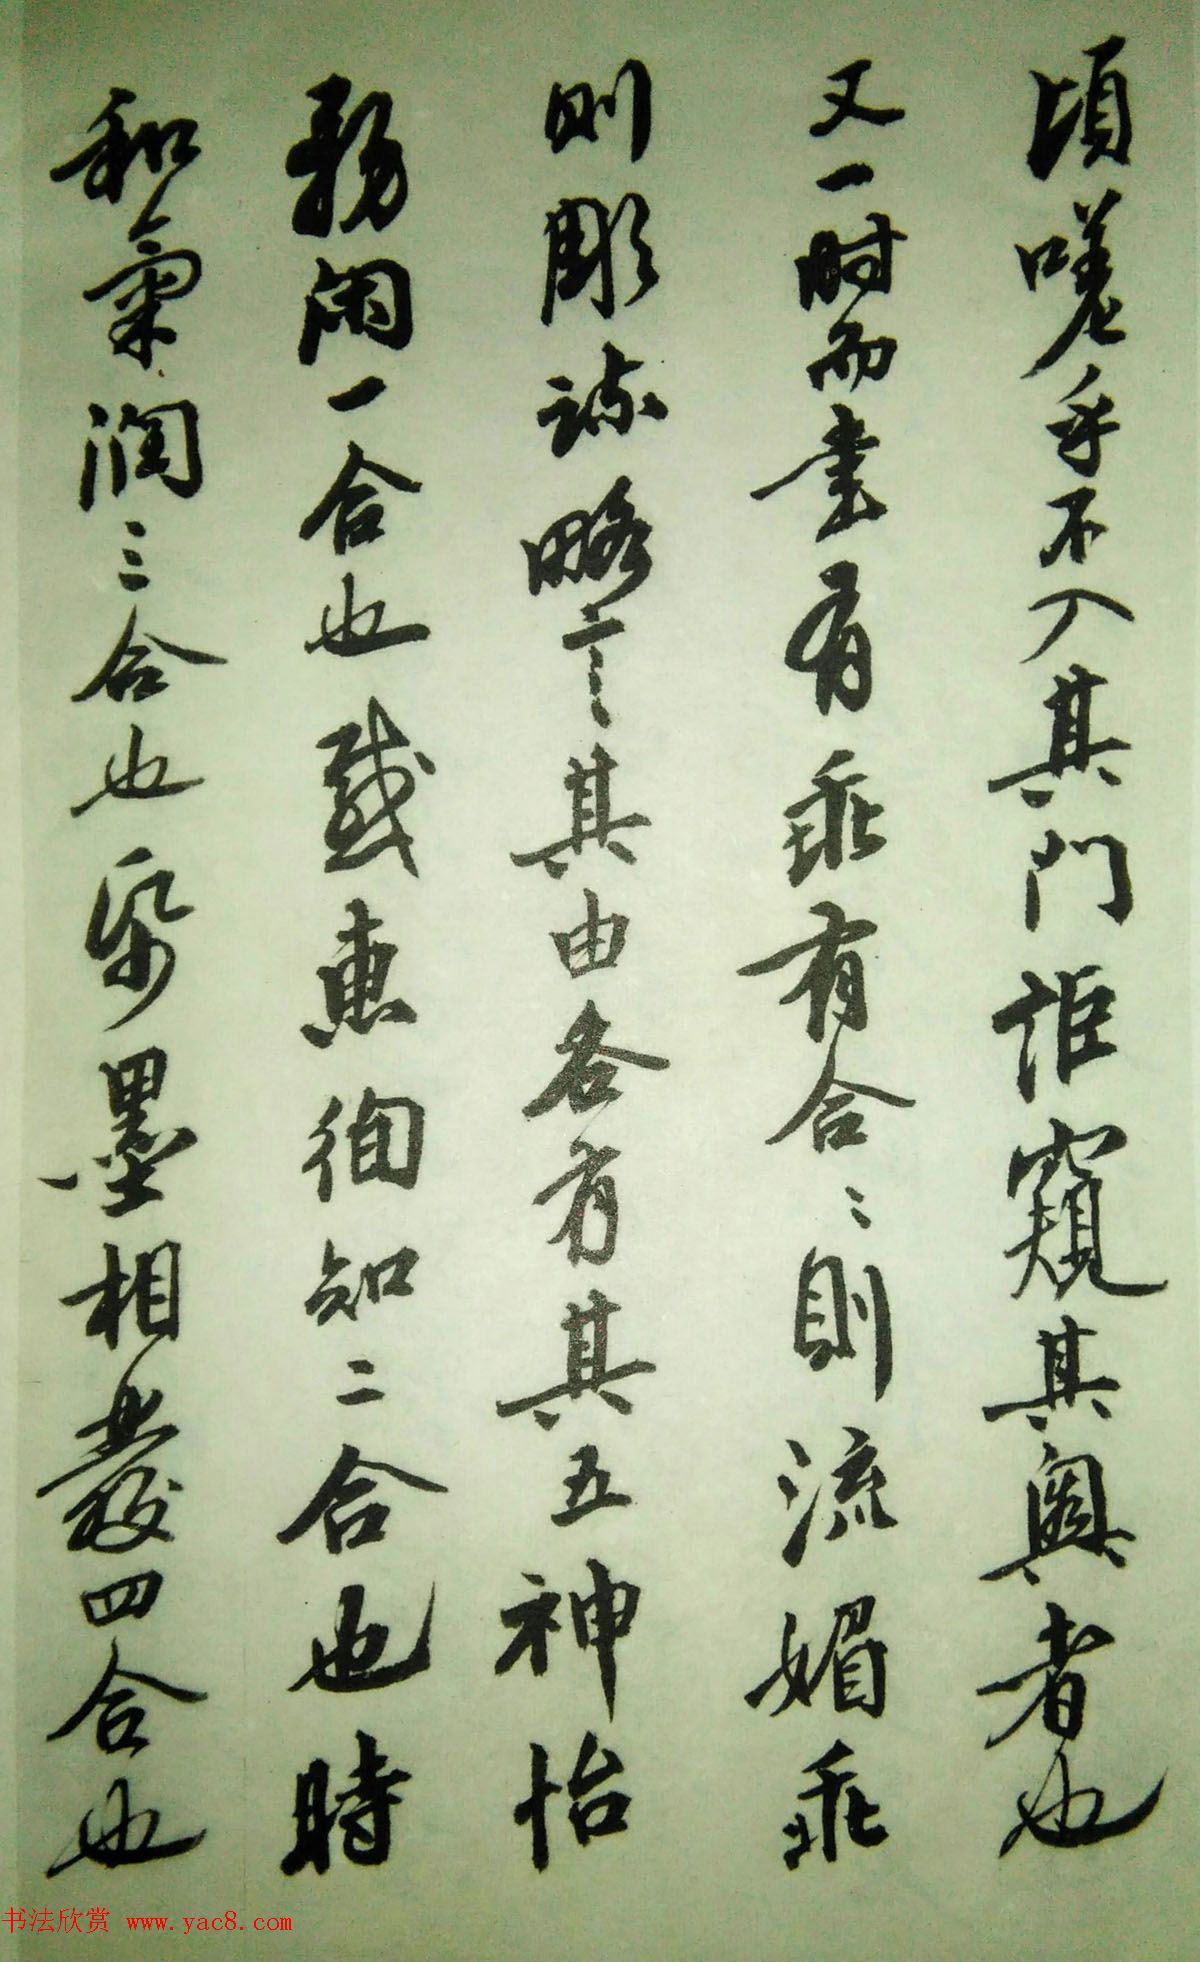 頃嗟乎不入其門詎窺其奧者也
又一时而書有乖有合〻則流媚乖
則彫疎略言其由各有其五神怡
務閑一合也感惠徇知二合也時
和氣潤三合也紙墨相發四合也
书法欣赏 www.yac8.com